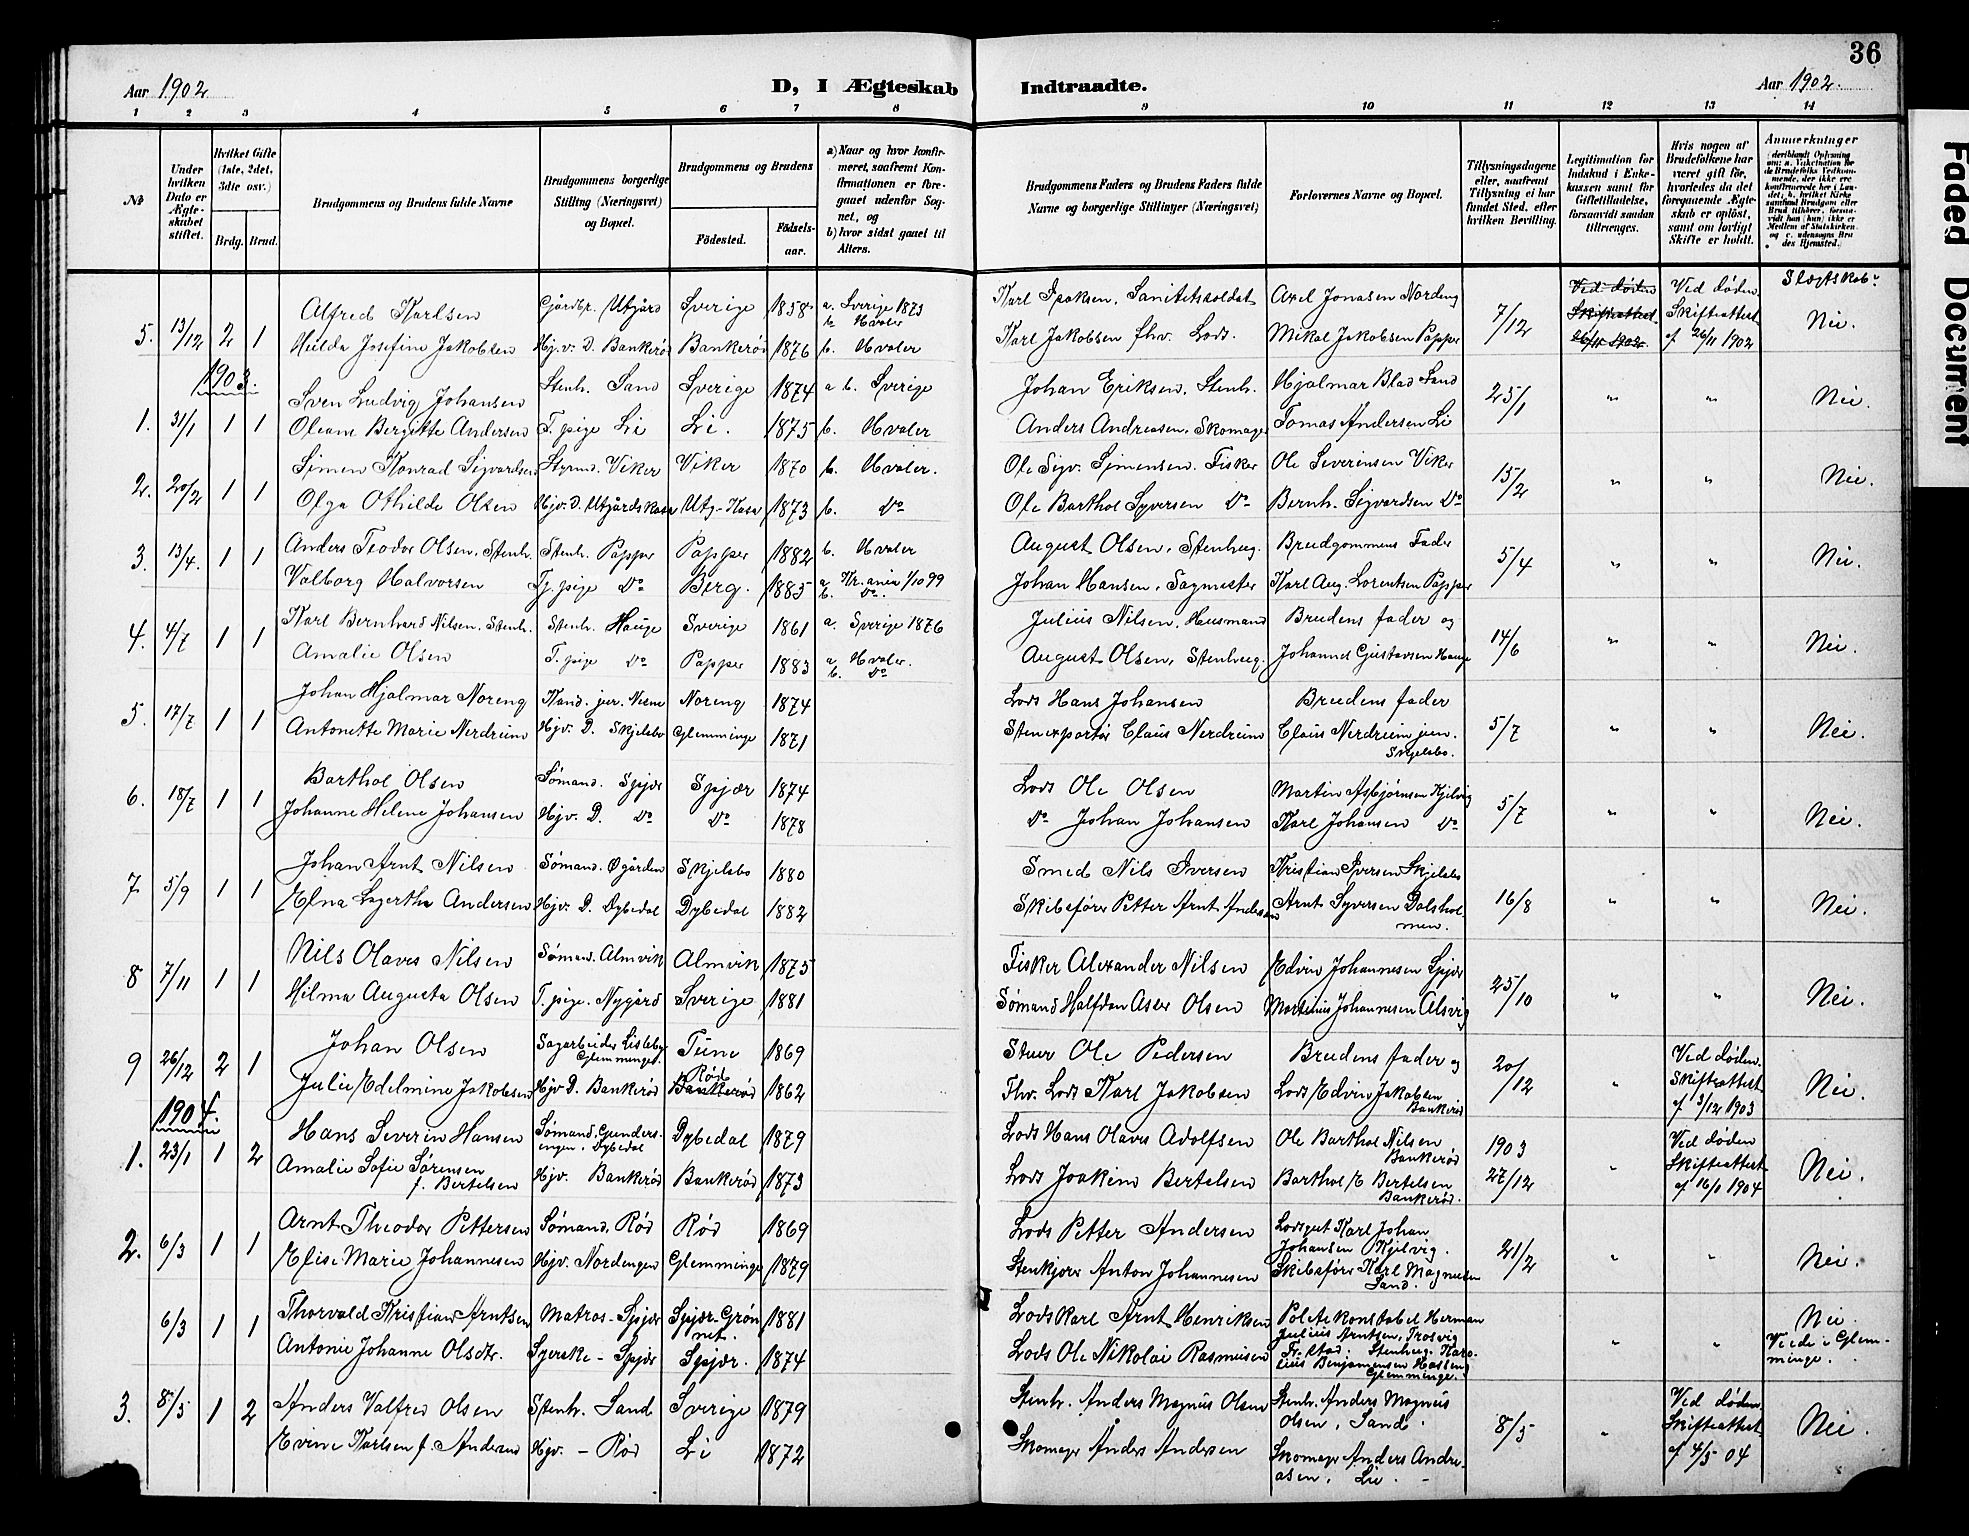 36
Aar 1902
D, I Ægteskab Indtraadte.
Aar 1902.
1 2 3 4 5 6 7 8 9 10 11 12 13 14
№
Under hvilken Dato er Ægteskabet stiftet.
Hvilket Gifte (1ste, 2det, 3die osv.)
Brdg. Brud.
Brudgommens og Brudens fulde Navne
Brudgommens borgerlige Stilling (Næringsvei) og Bopæl.
Brudgommens og Brudens
Fødested.
Fødselsaar.
a) Naar og hvor konfirmeret, saafremt Konfirmationen er foregaaet udenfor Sognet, og
b) hvor sidst gaaet til Alters.
Brudgommens Faders og Brudens Faders fulde Navne og borgerlige Stillinger (Næringsvei)
Forlovernes Navne og Bopæl.
Tillysningsdagene eller, saafremt Tillysning ei har fundet Sted, efter hvilken Bevilling.
Legitimation for Indskud i Enkekassen samt for Giftetilladelse, forsaavidt saadan tiltrænges.
Hvis nogen af Brudefolkene har været gift før, hvorledes da det foregaaende Ægteskab er opløst, samt om lovligt Skifte er holdt.
Anmerkninger
Slægtskab:
5. 13/12 2 1
Alfred Karlsen Gårdbr. Utgård Sverige 1858 a. Sverige 1873 b. Hvaler
Karl Isaksen, Sanitetssoldat Axel Jonasen Nordeng 7/12 Ved døden Skifteattest 26/11 1902 Ved døden Skifteattest af 26/11 1902 Nei.
Hulda Josefine Jakobsen Hj.v. D. Bankerød Bankerød 1876 b. Hvaler
Karl Jakobsen fhv. Lods. Mikal Jakobsen Papper
1903.
1. 31/1 1 1
Sven Ludvig Johansen Stenh. Sand Sverige 1874 a b. Sverige
Johan Eriksen, Stenh. Hjalmar Blad Sand 25/1 " " Nei.
Oleane Bergitte Andersen T. pige Li Li. 1875 b. Hvaler
Anders Andreasen, Skomager Tomas Andersen Li
2. 20/2 1 1
Simen Konrad Sigvardsen Styrmd. Viker Viker 1870 b. Hvaler.
Ole Sigv. Simensen. Fisker Ole Severinsen Viker 15/2 " " Nei.
Olga Othilde Olsen Hjv. D. Utgårdskasa Utg-Kasa 1873 b. Do
Ole Barthol Syversen Do Bernh. Sigvardsen Do
3. 13/4. 1 1
Anders Teodor Olsen, Stenh. Stenh. Papper Papper 1882 b. Hvaler
August Olsen, Stenhug. Brudgommens Fader 5/4 " " Nei.
Valborg Halvorsen Tj. pige Do Berg. 1885 a. Kr.ania 1/10 99 b. Do.
Johan Hansen, Sagmester Karl Aug. Lorentsen Papper
4. 4/7 1 1
Karl Bernhard Nilsen, Stenh. Stenh. Hauge Sverige 1861 a. Sverige 1876
Julius Nilsen, Husmand Brudens fader og 14/6 " " Nei.
Amalie Olsen T. pige Do Papper 1883 a. Hvaler. b. Do
August Olsen, Stenhug. Johannes Gustavsen Hauge
5. 17/7 1 1
Johan Hjalmar Noreng Kand. jur. Noreng 1874
Lods Hans Johansen Brudens fader 5/7 " " Nei.
Antonette Marie Nerdrum Hjv. D. Skjelsbo Glemminge 1871
Stenexportør Claus Nerdrum Claus Nerdrum jun. Skjelsbo.
6. 18/7 1 1
Barthol Olsen Sømand. Spjær Spjær 1874
Lods Ole Olsen Martin Asbjørnsen Kjelvig 5/7 " " Nei.
Johanne Helene Johansen Hjv. D. Do Do 1878
Do Johan Johansen Karl Johansen Do
7 5/9 1 1
Johan Arnt Nilsen Sømand. Øgården Skjelsbo 1880
Smed Nils Iversen Kristian Iversen Skjelsbo 16/8 " " Nei.
Elna Lagertha Andersen Hjv. D. Dybedal Dybedal 1882
Skibsfører Petter Arnt Andersen Arnt Syversen Dalsholmen.
8 7/11 1 1
Nils Olaves Nilsen Sømand. Almvik Almvik 1875
Fisker Alexander Nilsen Edvin Johannesen Spjær 25/10 " " Nei.
Hilma Augusta Olsen T. pige. Nygård Sverige 1881
Sømand Halfdan Aser Olsen Martinius Johannesen Alsvig
9 26/12 2 1
Johan Olsen Sagarbeider Lisleby Glemminge. Tune 1869
Stuer Ole Pedersen Brudens fader og 20/12 " Ved døden. Skifteattest af 3/12 1903 Nei.
Julie Edelmine Jakobsen Hjv D. Bankerød Rød Bankerød 1862
Fhv. Lods Karl Jakobsen Lods Edvin Jakobsen Bankerød
1904.
1. 23/1 1 2
Hans Severin Hansen Sømand, Gundersengen. Dybedal Dybedal 1879
Lods Hans Olaves Adolfsen Ole Barthol Nilsen Bankerød 1903 27/12 " Ved døden Skifteattest af 16/1 1904 Nei.
Amalie Sofie Sørensen f. Bertelsen Hjv. Bankerød Bankerød 1873
Lods Joakim Bertelsen Barthol E Bertelsen Bankerød.
2. 6/3 1 1
Arnt Theodor Pettersen Sømand. Rød Rød 1869
Lods Petter Andersen Lodsgut Karl Johan Johansen Kjelvig. 21/2 " " Nei.
Elise Marie Johannesen Hjv. Nordengen Glemminge 1879
Stenkjører Anton Johannesen Skibsfører Karl Magnusen Sand.
6/3 1 1
Thorvald Kristian Arntsen Matros - Spjær Spjær-Grønnet. 1881
Lods Karl Arnt Henriksen Politekonstabel Herman Julius Arntsen, Trosvig Fr.stad. " " Nei. Viede i Glemminge.
Antonie Johanne Olsdtr. Syerske - Spjær Spjær. 1874
Lods Ole Nikolai Rasmusen Stenhug. Karolius Benjaminsen Hasseng Glemminge.
3. 8/5 1 2
Anders Valfred Olsen Stenh. Sand Sverige 1879
Stenh. Anders Magnus Olsen Stenh. Anders Magnus Olsen, Sand. 8/5 " Ved døden. Skifteattest af 4/5 04 Nei.
Evine Karlsen f. Andersen Hjv. - Rød Li 1872
Skomager Anders Andersen Skomager Anders Andreasen, Li. -
Faded Document